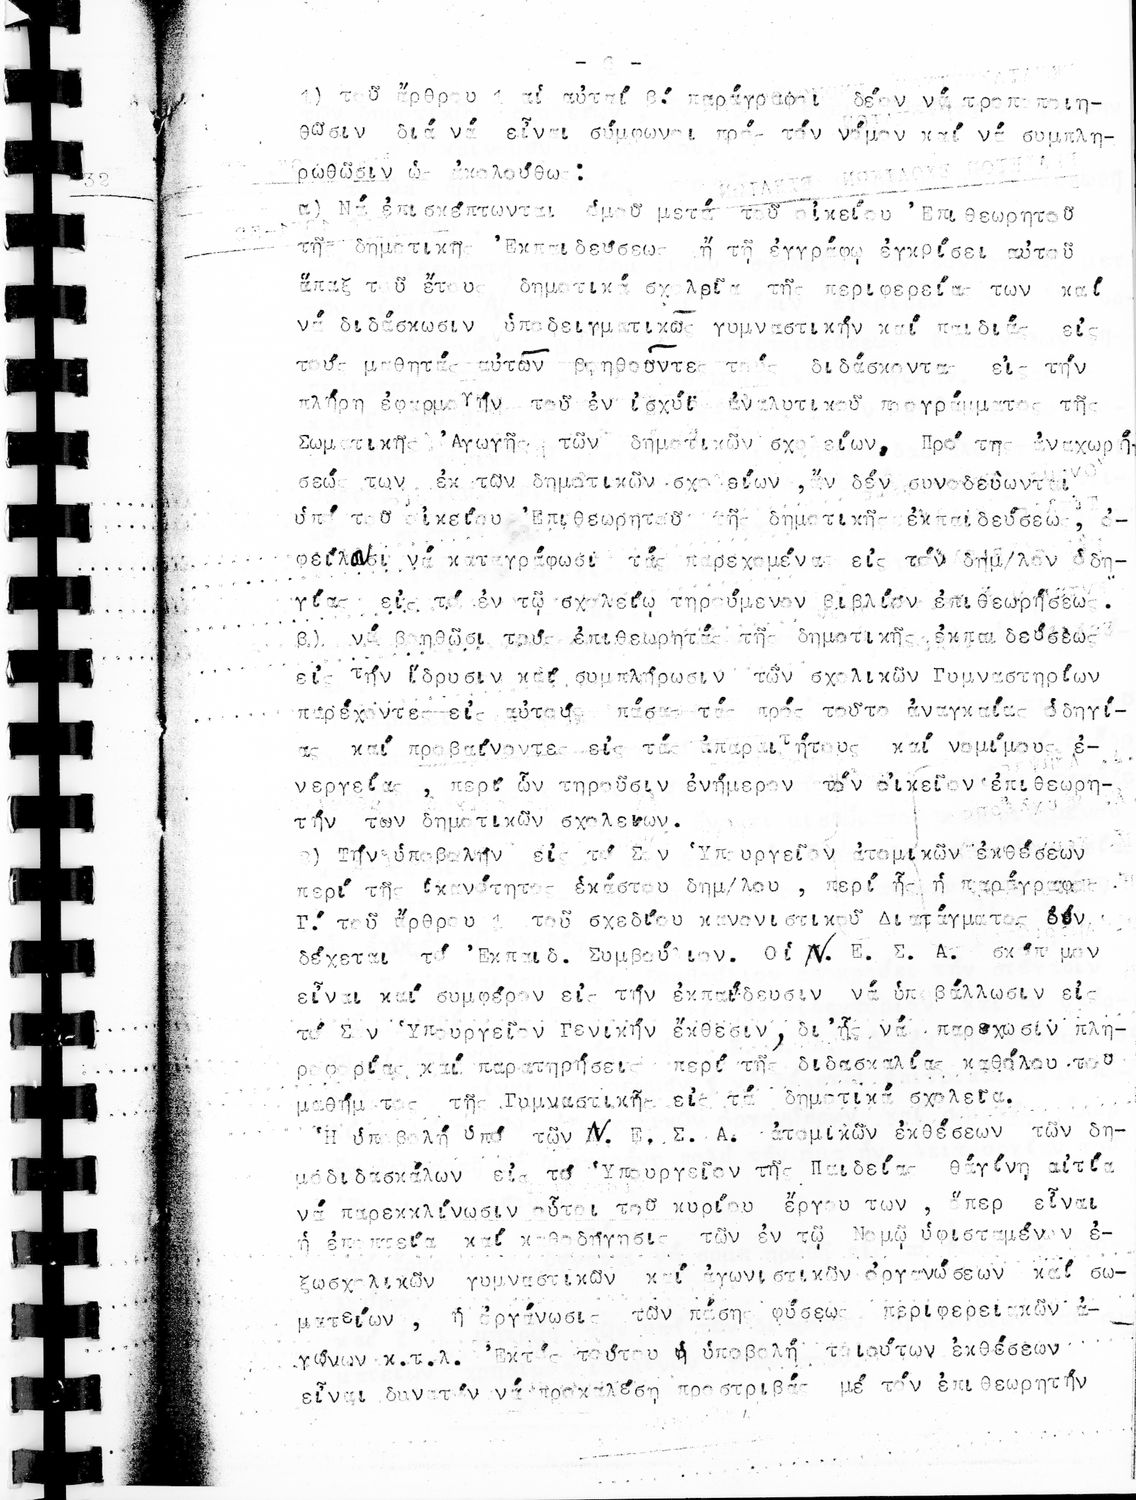 1) τοῦ ἄρθρου 1 αἱ αὐταί β΄ παράγραφοι δέον νά τροποποιη-
θῶσιν διά νά εἶναι σύμφωνοι πρός τόν νόμον καί νά συμπλη-
ρωθῶσιν ὡς ἀκολούθως:
α) Νά ἐπισκέπτωνται ὁμοῦ μετά τοῦ οἰκείου Ἐπιθεωρητοῦ
τῆς δημοτικῆς Ἐκπαιδεύσεως ἤ τῇ ἐγγράφῳ ἐγκρίσει αὐτοῦ
ἅπαξ τοῦ ἔτους δημοτικά σχολεῖα τῆς περιφερείας των καί
νά διδάσκωσιν ὑποδειγματικῶς γυμναστικήν καί παιδιάς εἰς
τούς μαθητάς αὐτῶν βοηθοῦντες τούς διδάσκοντας εἰς τήν
πλήρη ἐφαρμογήν τοῦ ἐν ἰσχύϊ ἀναλυτικοῦ προγράμματος τῆς
Σωματικῆς Ἀγωγῆς τῶν δημοτικῶν σχολείων, Πρό της ἀναχωρή-
σεώς των ἐκ τῶν δημοτικῶν σχολείων, ἄν δέν συνοδεύωνται
ὑπό τοῦ οἰκείου Ἐπιθεωρητοῦ τῆς δημοτικῆς ἐκπαιδεύσεως, ὀ-
φείλουσι νά καταγράφωσι τάς παρεχομένας εἰς τόν δημ/λον ὁδη-
γίας εἰς τό ἐν τῷ σχολείῳ τηρούμενον βιβλίον ἐπιθεωρήσεως.
β) νά βοηθῶσι τούς ἐπιθεωρητάς τῆς δημοτικῆς ἐκπαιδεύσεως
εἰς τήν ἵδρυσιν καί συμπλήρωσιν τῶν σχολικῶν Γυμναστηρίων
παρέχοντες εἰς αὐτούς πάσας τάς πρός τοῦτο ἀναγκαίας ὁδηγί-
ας καί προβαίνοντες εἰς τάς ἀπαραιτήτους καί νομίμους ἐ-
νεργείας , περί ὧν τηροῦσιν ἐνήμερον τόν οἰκεῖον ἐπιθεωρη-
τήν των δημοτικῶν σχολείων.
Τήν ὑποβολήν εἰς τό Σ΄ν Ὑπουργεῖον ἀτομικῶν ἐκθέσεων
περί τῆς ἱκανότητος ἑκάστου δημ/λου , περί ἧς ἡ παράγραφος
Γ΄ τοῦ ἄρθρου 1 τοῦ σχεδίου κανονιστικοῦ Διατάγματος δέν
δέχεται τό Ἐκπαιδ. Συμβούλιον. Οἱ Ν. Ε. Σ. Α. σκόπιμον
εἶναι καί συμφέρον εἰς τήν ἐκπαίδευσιν νά ὑποβάλλωσιν εἰς
τό Σ΄ν Ὑπουργεῖον Γενικήν ἔκθεσιν, δι' ἧς νά παρεχωσιν πλη-
ροφορίας καί παρατηρήσεις περί τῆς διδασκαλίας καθόλου τοῦ
μαθήματος τῆς Γυμναστικῆς εἰς τά δημοτικά σχολεῖα.
Ἡ ὑποβολή ὑπό τῶν Ν. Ε. Σ. Α. ἀτομικῶν ἐκθέσεων τῶν δη-
μοδιδασκάλων εἰς τό Ὑπουργεῖον τῆς Παιδείας θά γίνῃ αἰτία
νά παρεκκλίνωσιν οὗτοι τοῦ κυρίου ἔργου των , ὅπερ εἶναι
ἡ ἐποπτεία καί καθοδήγησις τῶν ἐν τῷ Νομῷ ὑφισταμένων ἐ-
ξωσχολικῶν γυμναστικῶν καί ἀγωνιστικῶν ὀργανώσεων καί σω-
ματείων , ἡ ὀργάνωσις τῶν πάσης φύσεως περιφερειακῶν ἀ-
γώνων κ.τ.λ. Ἐκτός τούτου ἡ ὑποβολή τοιούτων ἐκθέσεων
εἶναι δυνατόν νά προκαλέσῃ προστριβάς μέ τόν ἐπιθεωρητήν